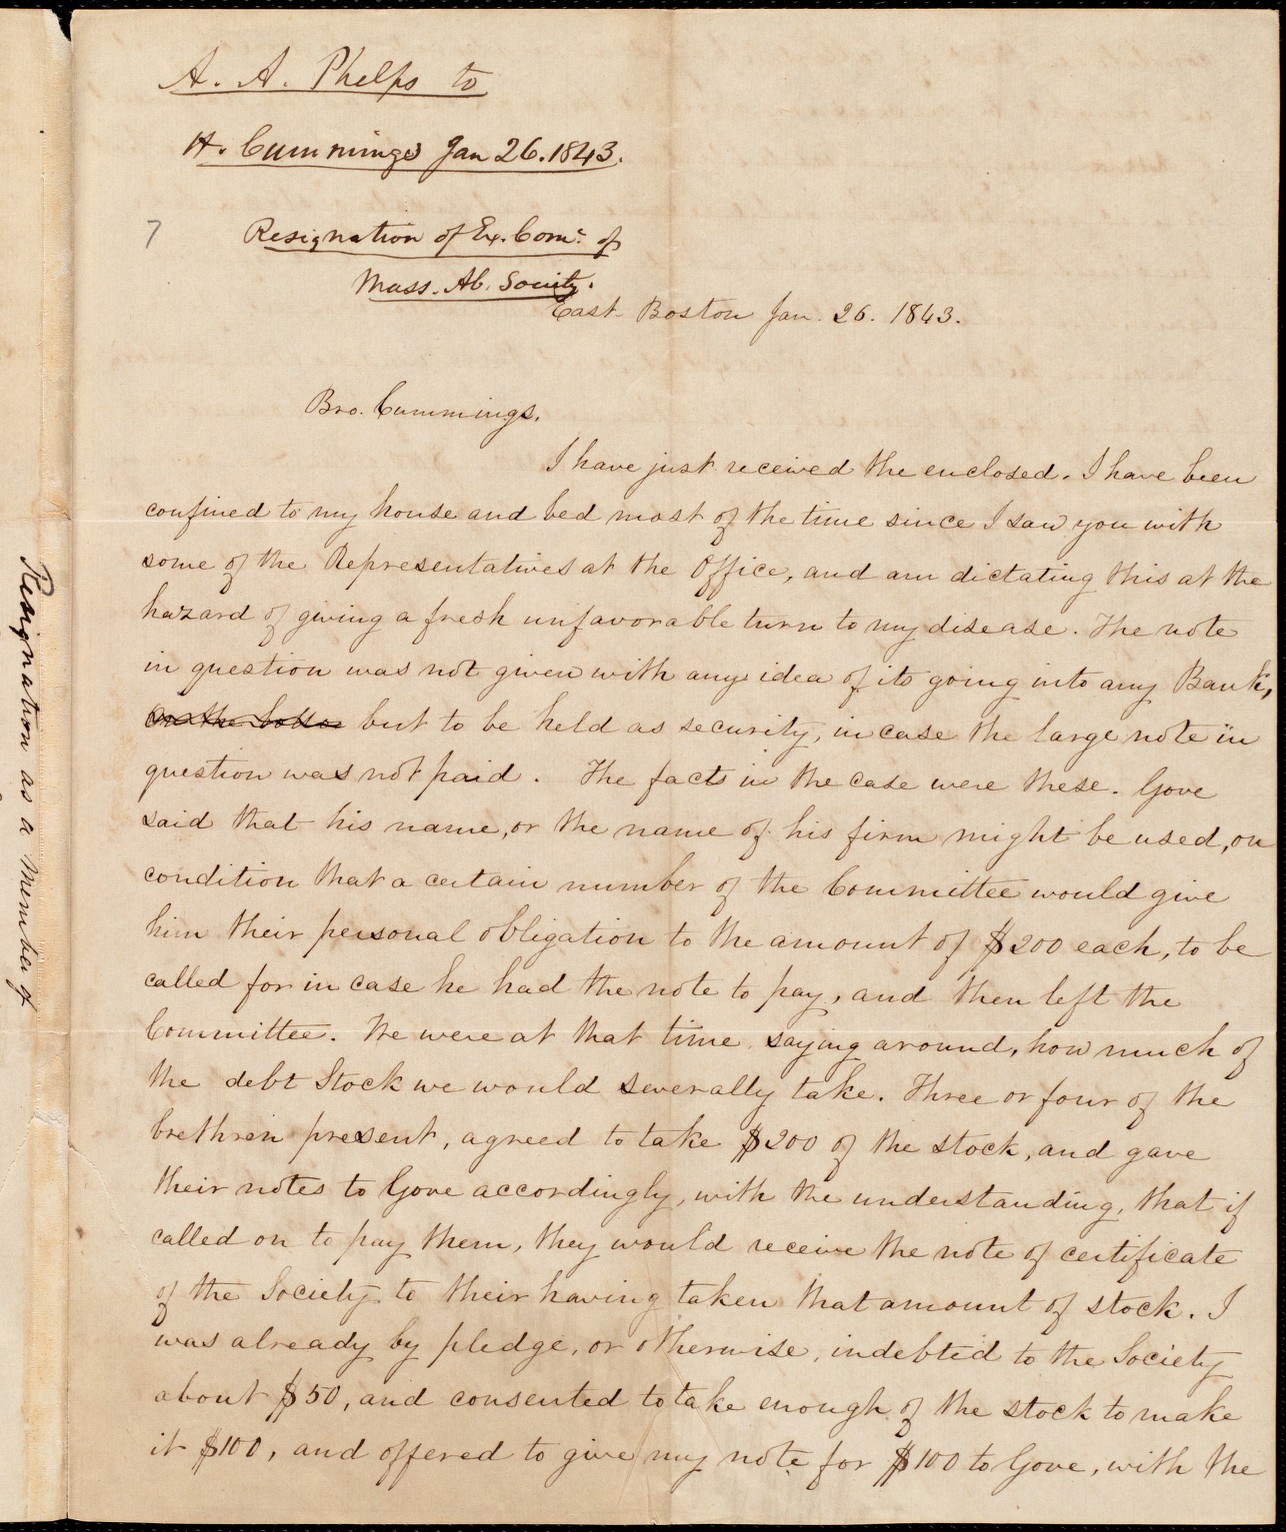 A. A. Phelps to
H. Cummings Jan 26. 1843.
7
Resignation of Ex. Com: of
Mass. Ab. Society.
East Boston Jan. 26. 1843.
Bro. Cummings,
I have just received the enclosed. I have been
confined to my house and bed most of the time since I saw you with
some of the Representatives at the Office, and am dictating this at the
hazard of giving a fresh unfavorable turn to my disease. The note
in question was not given with any idea of its going into any Bank,
but to be held as security, in case the large note in
question was not paid. The facts in the case were these. Gove
said that his name, or the name of his firm might be used, on
condition that a certain number of the Committee would give
him their personal obligation to the amount of $200 each, to be
called for in case he had the note to pay, and then left the
Committee. We were at that time saying around, how much of
the debt Stock we would severally take. Three or four of the
brethren present, agreed to take $200 of the stock, and gave
their notes to Gove accordingly, with the understanding, that if
called on to pay them, they would receive the note of certificate
of the Society to their having taken that amount of stock. I
was already by pledge, or otherwise, indebted to the Society
about $50, and consented to take enough of the stock to make
it $100, and offered to give my note for $100 to Gove, with the
Resignation as a Member of